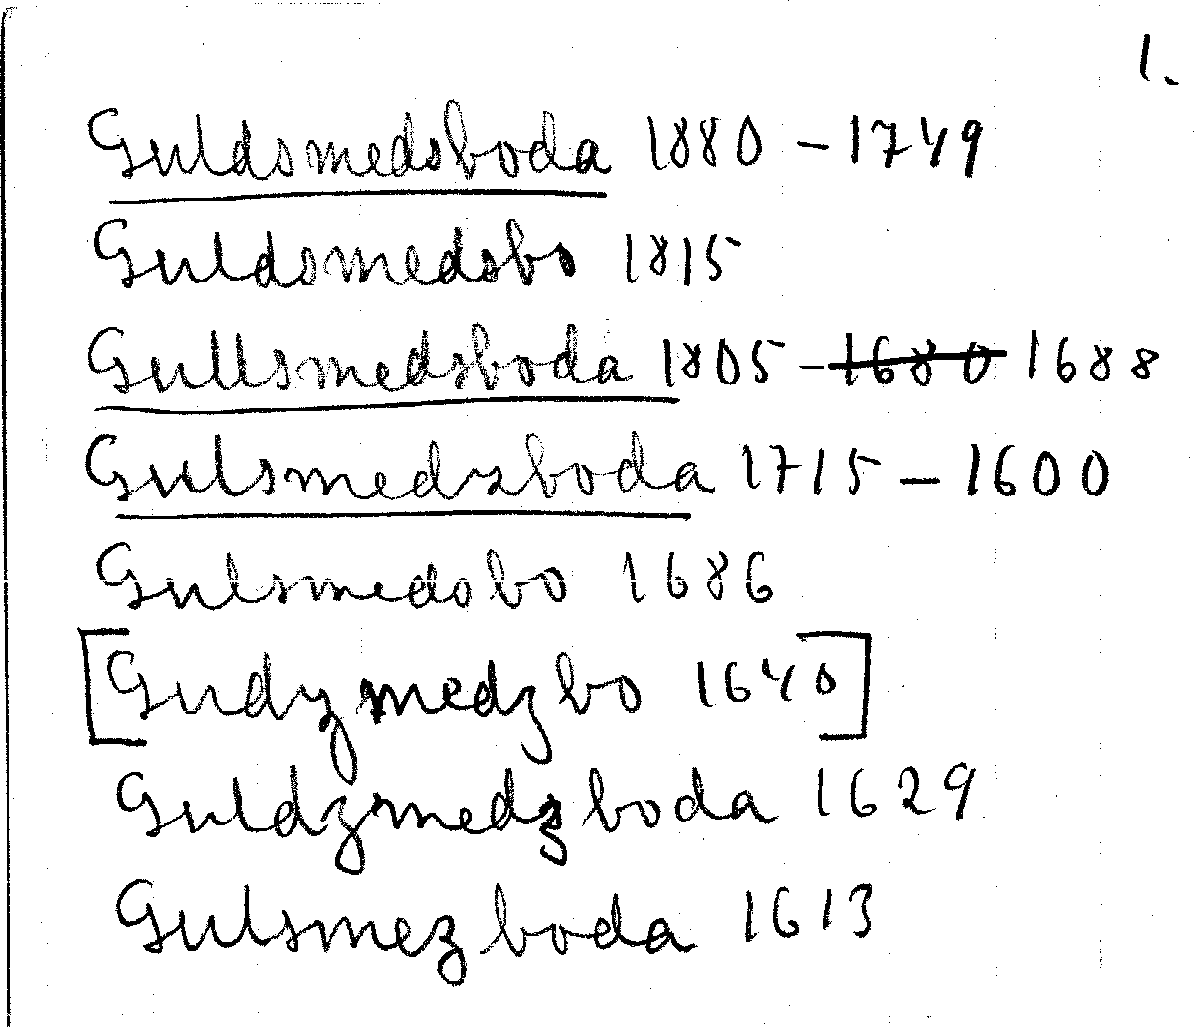 1.
Guldsmedsboda 1880 – 1749
Guldsmedsbo 1815
Gullsmedsboda 1805 – 1680 1688
Gulsmedzboda 1715 – 1600
Gulsmedsbo 1686
[Gudzmedzbo 1640]
Guldzmedzboda 1629
Gulsmezboda 1613